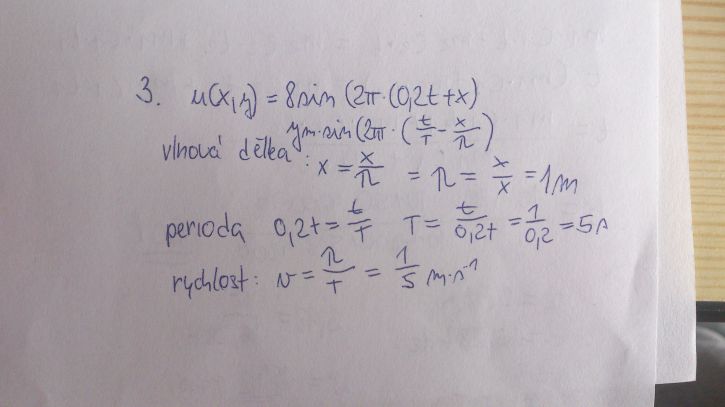 3. u(x,y) = 8 sin (2π·(0,2t+x)
ym·sin(2π·(t/T - x/λ)
vlnová délka : x = x/λ = λ = x/x = 1m
perioda 0,2t = t/T T = t/0,2t = 1/0,2 = 5s
rychlost: v = λ/T = 1/5 m·s⁻¹